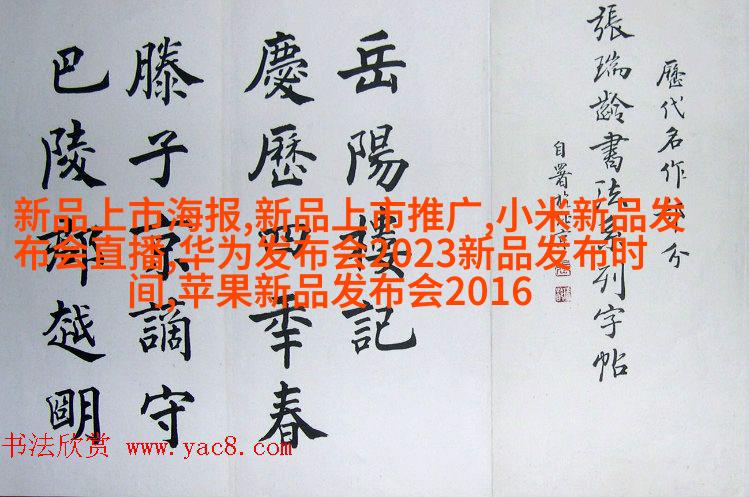 歷代名作部分
張瑞齡書法系列字帖
自署
岳陽樓記
慶歷四年春
滕子京謫守
巴陵郡越明
新品上市海报,新品上市推广,小米新品发
布会直播,华为发布会2023新品发布时
间,苹果新品发布会2016
书法欣赏 www.yac8.com